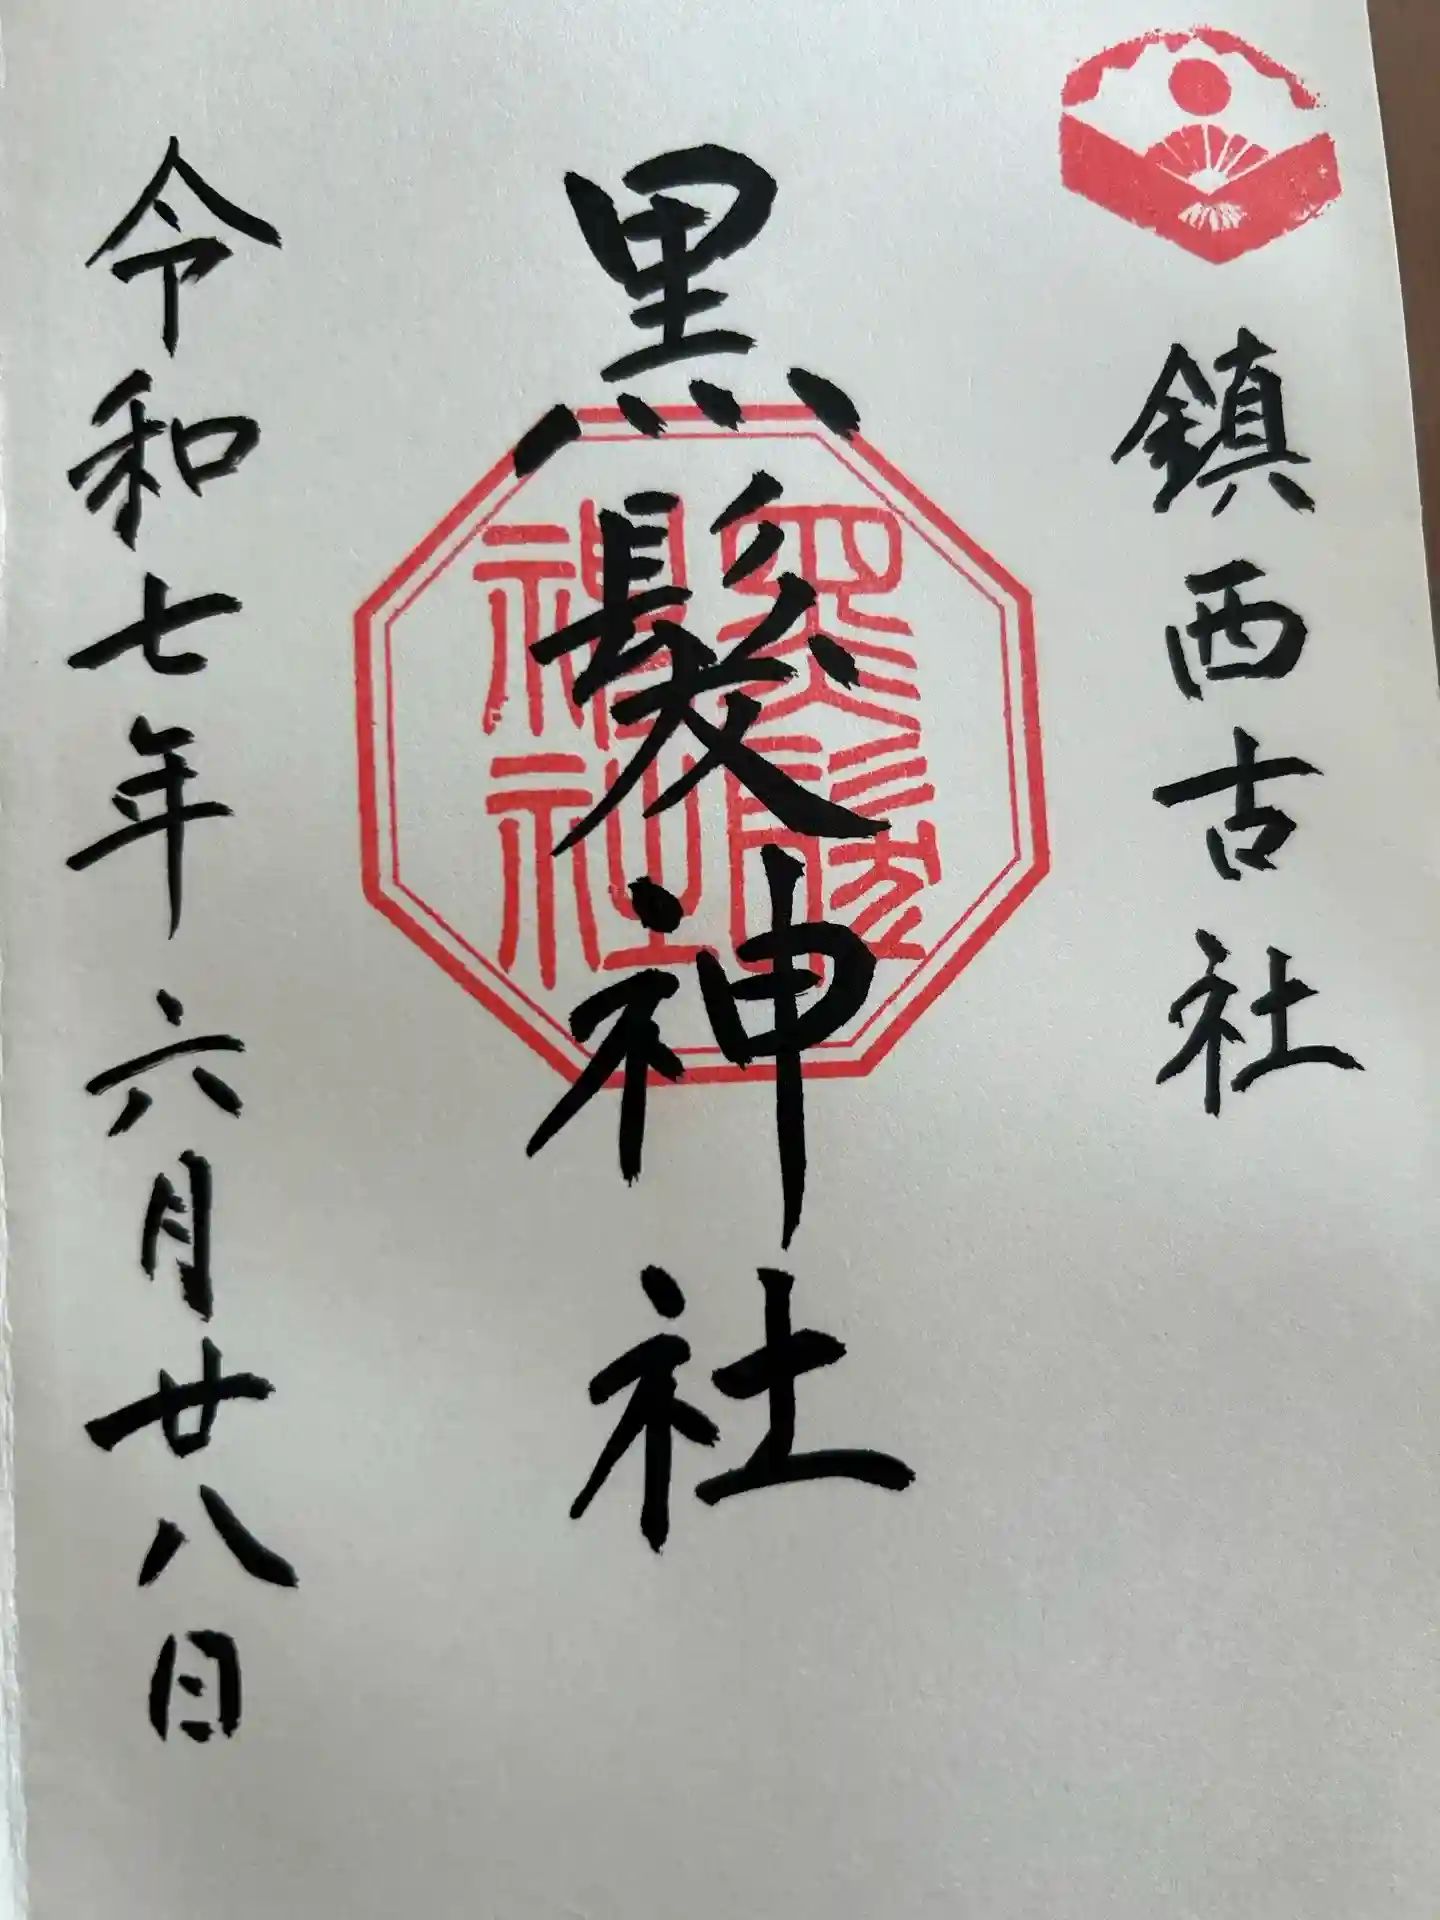 鎮西古社
黒髪神社
黒髪
神社
令和七年六月廿八日